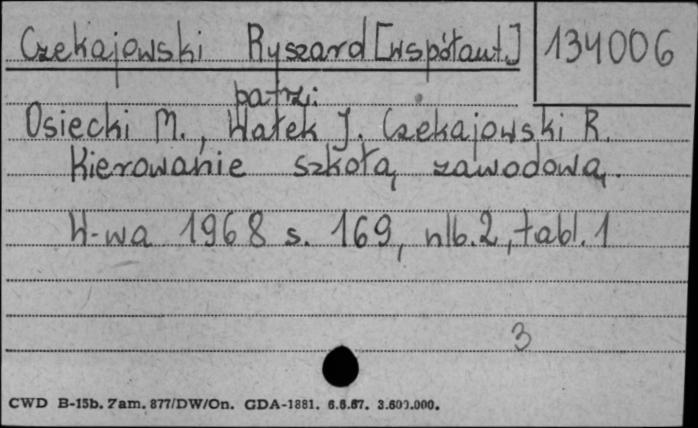 Czekajowski Ryszard [współaut.] 134006
patrz:
Osiecki M., Watek J. Czekajowski R.
Kierowanie szkołą zawodową.
W-wa 1968 s. 169, nlb. 2, tabl. 1
3
CWD B-15b. Zam. 877/DW/On. GDA-1881. 6.6.67. 3.600.000.